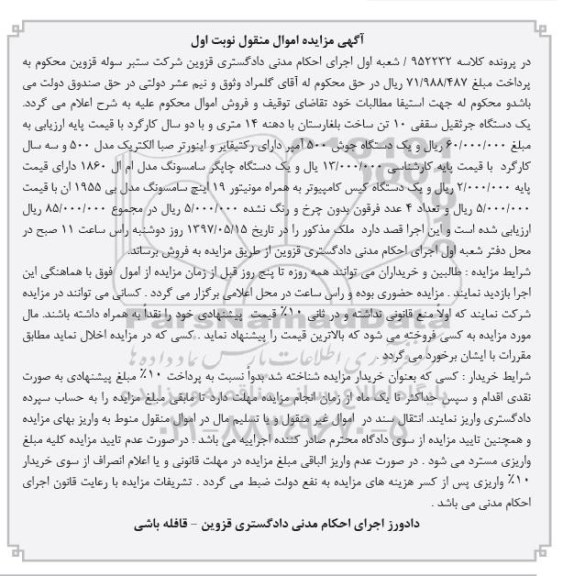 آگهی مزایده اموال منقول نوبت اول
در پرونده کلاسه ۹۵۲۲۳۲ / شعبه اول اجرای احکام مدنی دادگستری قزوین شرکت ستبر سوله قزوین محکوم به
پرداخت مبلغ ۷۱/۹۸۸/۴۸۷ ریال در حق محکوم له آقای گلمراد وثوق و نیم عشر دولتی در حق صندوق دولت می
باشدو محکوم له جهت استیفا مطالبات خود تقاضای توقیف و فروش اموال محکوم علیه به شرح اعلام می گردد.
یک دستگاه جرثقیل سقفی ۱۰ تن ساخت بلغارستان با دهنه ۱۴ متری و با دو سال کارگرد با قیمت پایه ارزیابی به
مبلغ ۶۰/۰۰۰/۰۰۰ ریال و یک دستگاه جوش ۵۰۰ آمپر دارای رکتیفایر و اینورتر صبا الکتریک مدل ۵۰۰ و سه سال
کارگرد با قیمت پایه کارشناسی ۱۳/۰۰۰/۰۰۰ یال و یک دستگاه چاپگر سامسونگ مدل ام ال ۱۸۶۰ دارای قیمت
پایه ۲/۰۰۰/۰۰۰ ریال و یک دستگاه کیس کامپیوتر به همراه مونیتور ۱۹ اینچ سامسونگ مدل بی ۱۹۵۵ ان با قیمت
۵/۰۰۰/۰۰۰ ریال و تعداد ۴ عدد فرقون بدون چرخ و رنگ نشده ۵/۰۰۰/۰۰۰ ریال در مجموع ۸۵/۰۰۰/۰۰۰ ریال
ارزیابی شده است و این اجرا قصد دارد ملک مذکور را در تاریخ ۱۳۹۷/۰۵/۱۵ روز دوشنبه راس ساعت ۱۱ صبح در
محل دفتر شعبه اول اجرای احکام مدنی دادگستری قزوین از طریق مزایده به فروش برساند.
شرایط مزایده : طالبین و خریداران می توانند همه روزه تا پنج روز قبل از زمان مزایده از امول فوق با هماهنگی این
اجرا بازدید نمایند . مزایده حضوری بوده و راس ساعت در محل اعلامی برگزار می گردد . کسانی می توانند در مزایده
شرکت نمایند که اولا منع قانونی نداشته و در ثانی ۱۰٪ قیمت پیشنهادی خود را نقداً به همراه داشته باشند. مال
مورد مزایده به کسی فروخته می شود که بالاترین قیمت را پیشنهاد نماید . کسی که در مزایده اخلال نماید مطابق
مقررات با ایشان برخورد می گردد
شرایط خریدار : کسی که بعنوان خریدار مزایده شناخته شد بدواً نسبت به پرداخت ۱۰٪ مبلغ پیشنهادی به صورت
نقدی اقدام و سپس حداکثر تا یک ماه از زمان انجام مزایده مهلت دارد تا مابقی مبلغ مزایده را به حساب سپرده
دادگستری واریز نمایند. انتقال سند در اموال غیر منقول و یا تسلیم مال در اموال منقول منوط به واریز بهای مزایده
و همچنین تایید مزایده از سوی دادگاه محترم صادر کننده اجراییه می باشد . در صورت عدم تایید مزایده کلیه مبلغ
واریزی مسترد می شود . در صورت عدم واریز الباقی مبلغ مزایده در مهلت قانونی و یا اعلام انصراف از سوی خریدار
۱۰٪ واریزی پس از کسر هزینه های مزایده به نفع دولت ضبط می گردد . تشریفات مزایده با رعایت قانون اجرای
احکام مدنی می باشد .
دادورز اجرای احکام مدنی دادگستری قزوین – قافله باشی
ParsNamadData
۰۲۱-۸۸۳۴۹۶۷۰-۵